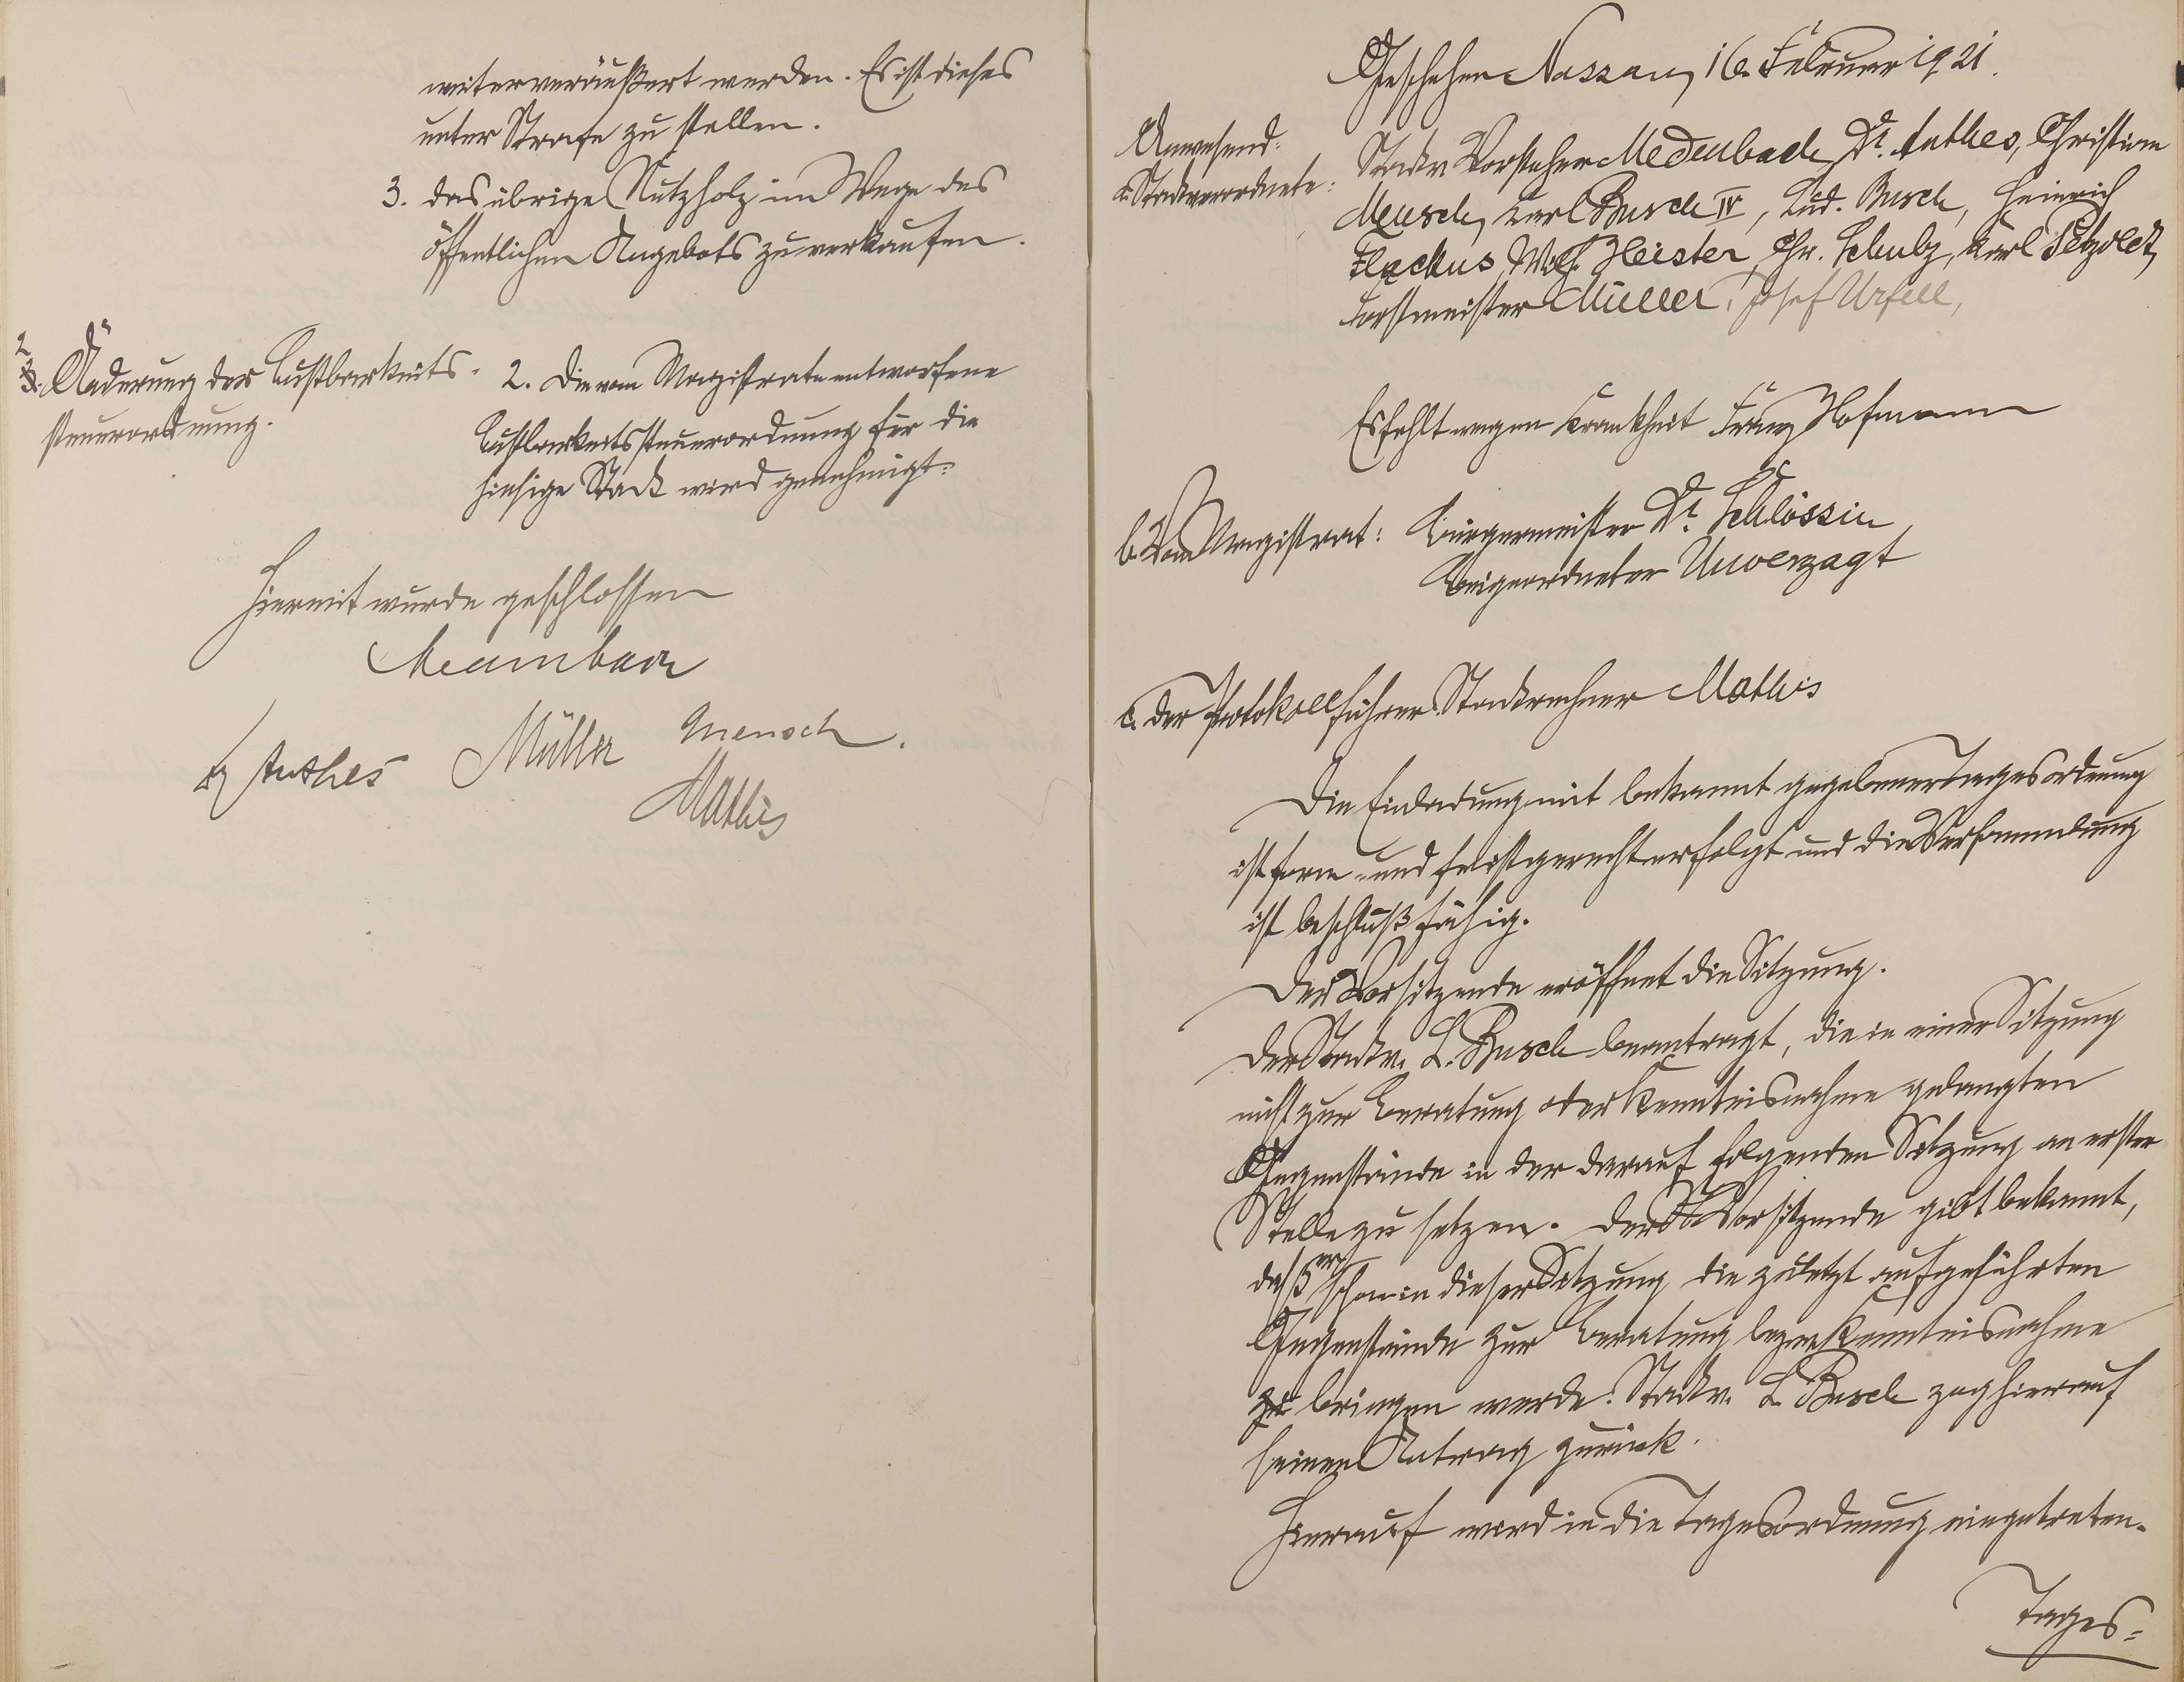 weiterveräußert werden. Es ist dieses
unter Strafe zu stellen.
3. das übrige Nutzholz im Wege des
öffentlichen Angebots zu verkaufen.
2.
Änderung der Lustbarkeits-
steuerordnung.
2. Die vom Magistrate entworfene
Lustbarkeitssteuerordnung für die
hiesige Stadt wird genehmigt.
Hiermit wurde geschlossen
Dr Anthes Müller Mensch.
Mathis
Geschehen Nassau, 16. Februar 1921.
Anwesend:
a. Stadtverordnete: Stadtv. Vorsteher Medenbach, Dr. Anthes, Christian
Mensch, Karl Busch IV, Lud. Busch, Heinrich
Flackus, Wilh. Heister, Chr. Schulz, Karl Petzoldt,
Forstmeister Müller, Josef Urfell,
Es fehlt wegen Krankheit Franz Hofmann
b. Vom Magistrat: Bürgermeister Dr. Schlössin
Beigeordneter Unverzagt
c. der Protokollführer Stadtrechner Mathis
Die Einladung mit bekannt gegebener Tagesordnung
ist form- und fristgerecht erfolgt und die Versammlung
ist beschlußfähig.
Der Vorsitzende eröffnet die Sitzung.
Der Stadtv. L. Busch beantragt, die in einer Sitzung
nicht zur Beratung oder Kenntnisnahme gelangten
Gegenstände in der darauf folgenden Sitzung an erster
Stelle zu setzen. Der Vorsitzende gibt bekannt,
daß er schon in dieser Sitzung die zuletzt aufgeführten
Gegenstände zur Beratung bezw. Kenntnisnahme
zu bringen werde. Stadtv. L. Busch zog hierauf
seinen Antrag zurück.
Hierauf wird in die Tagesordnung eingetreten.
Tages=